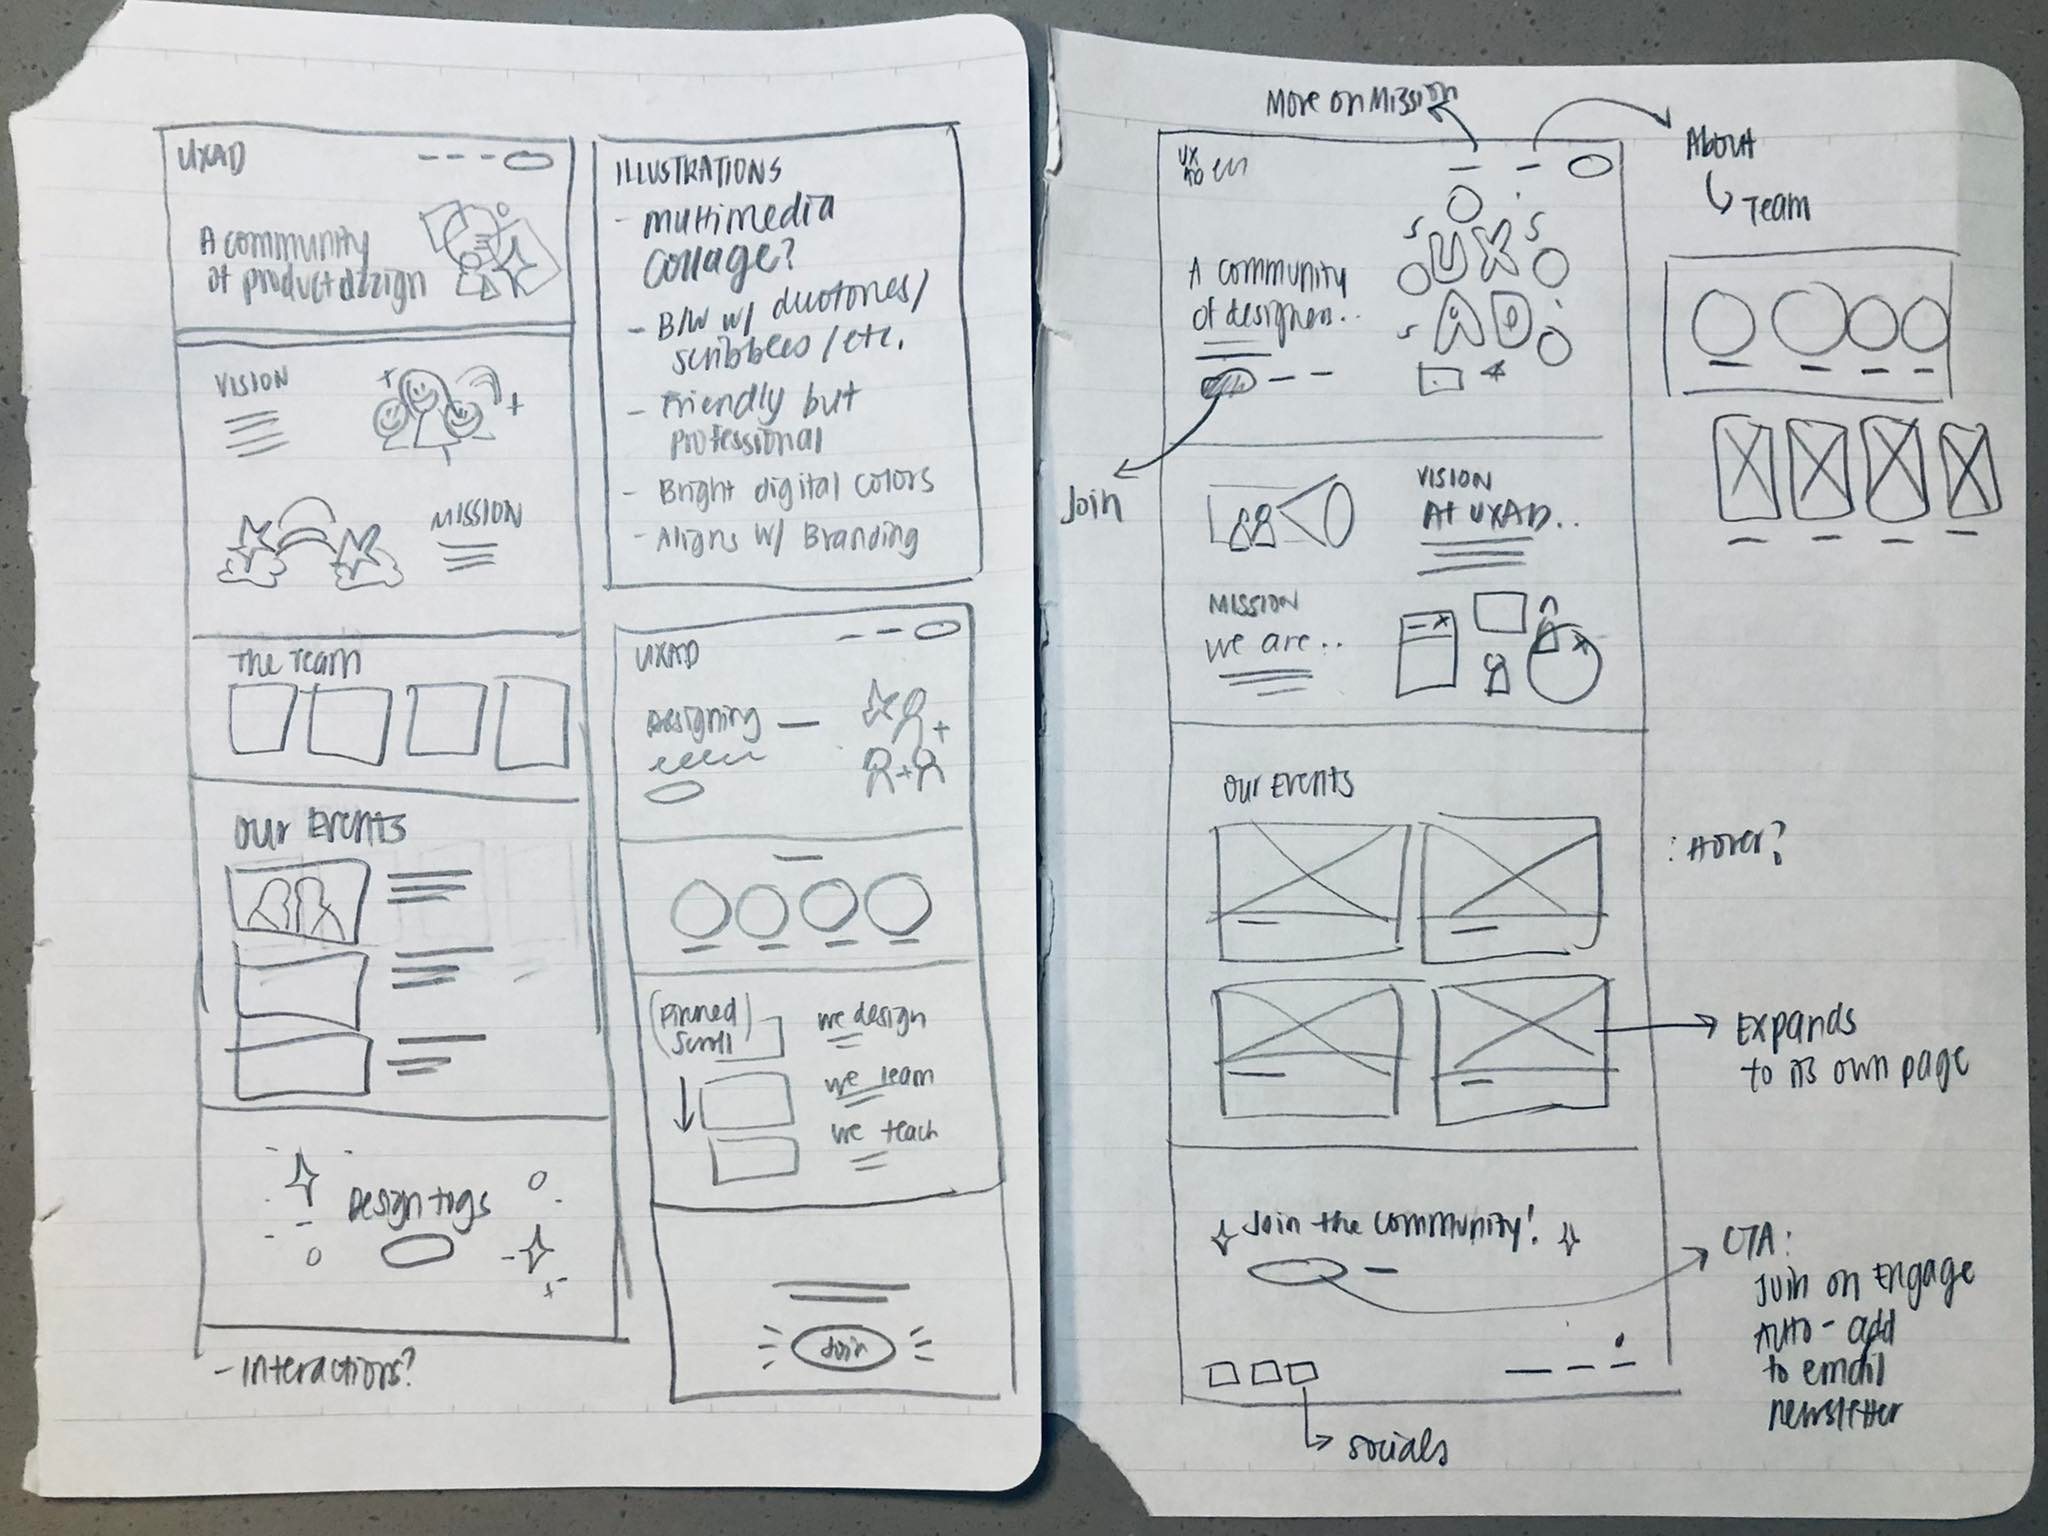 UXAD
A community
of product design
VISION
MISSION
The Team
Our Events
Design togs
- Interactions?
ILLUSTRATIONS
- Multimedia
collage?
- B/W w/ duotones/
scribbles/etc.
- Friendly but
professional
- Bright digital colors
- Aligns w/ Branding
UXAD
Designing
(Pinned
scroll)
we design
we learn
we teach
Join
More on Mission
About
Team
UX
AD
UX
AD
A community
of designers..
Join
VISION
At UXAD..
MISSION
we are..
Our Events
: Hover?
Expands
to its own page
Join the community!
CTA:
Join on Engage
Auto-add
to email
newsletter
socials